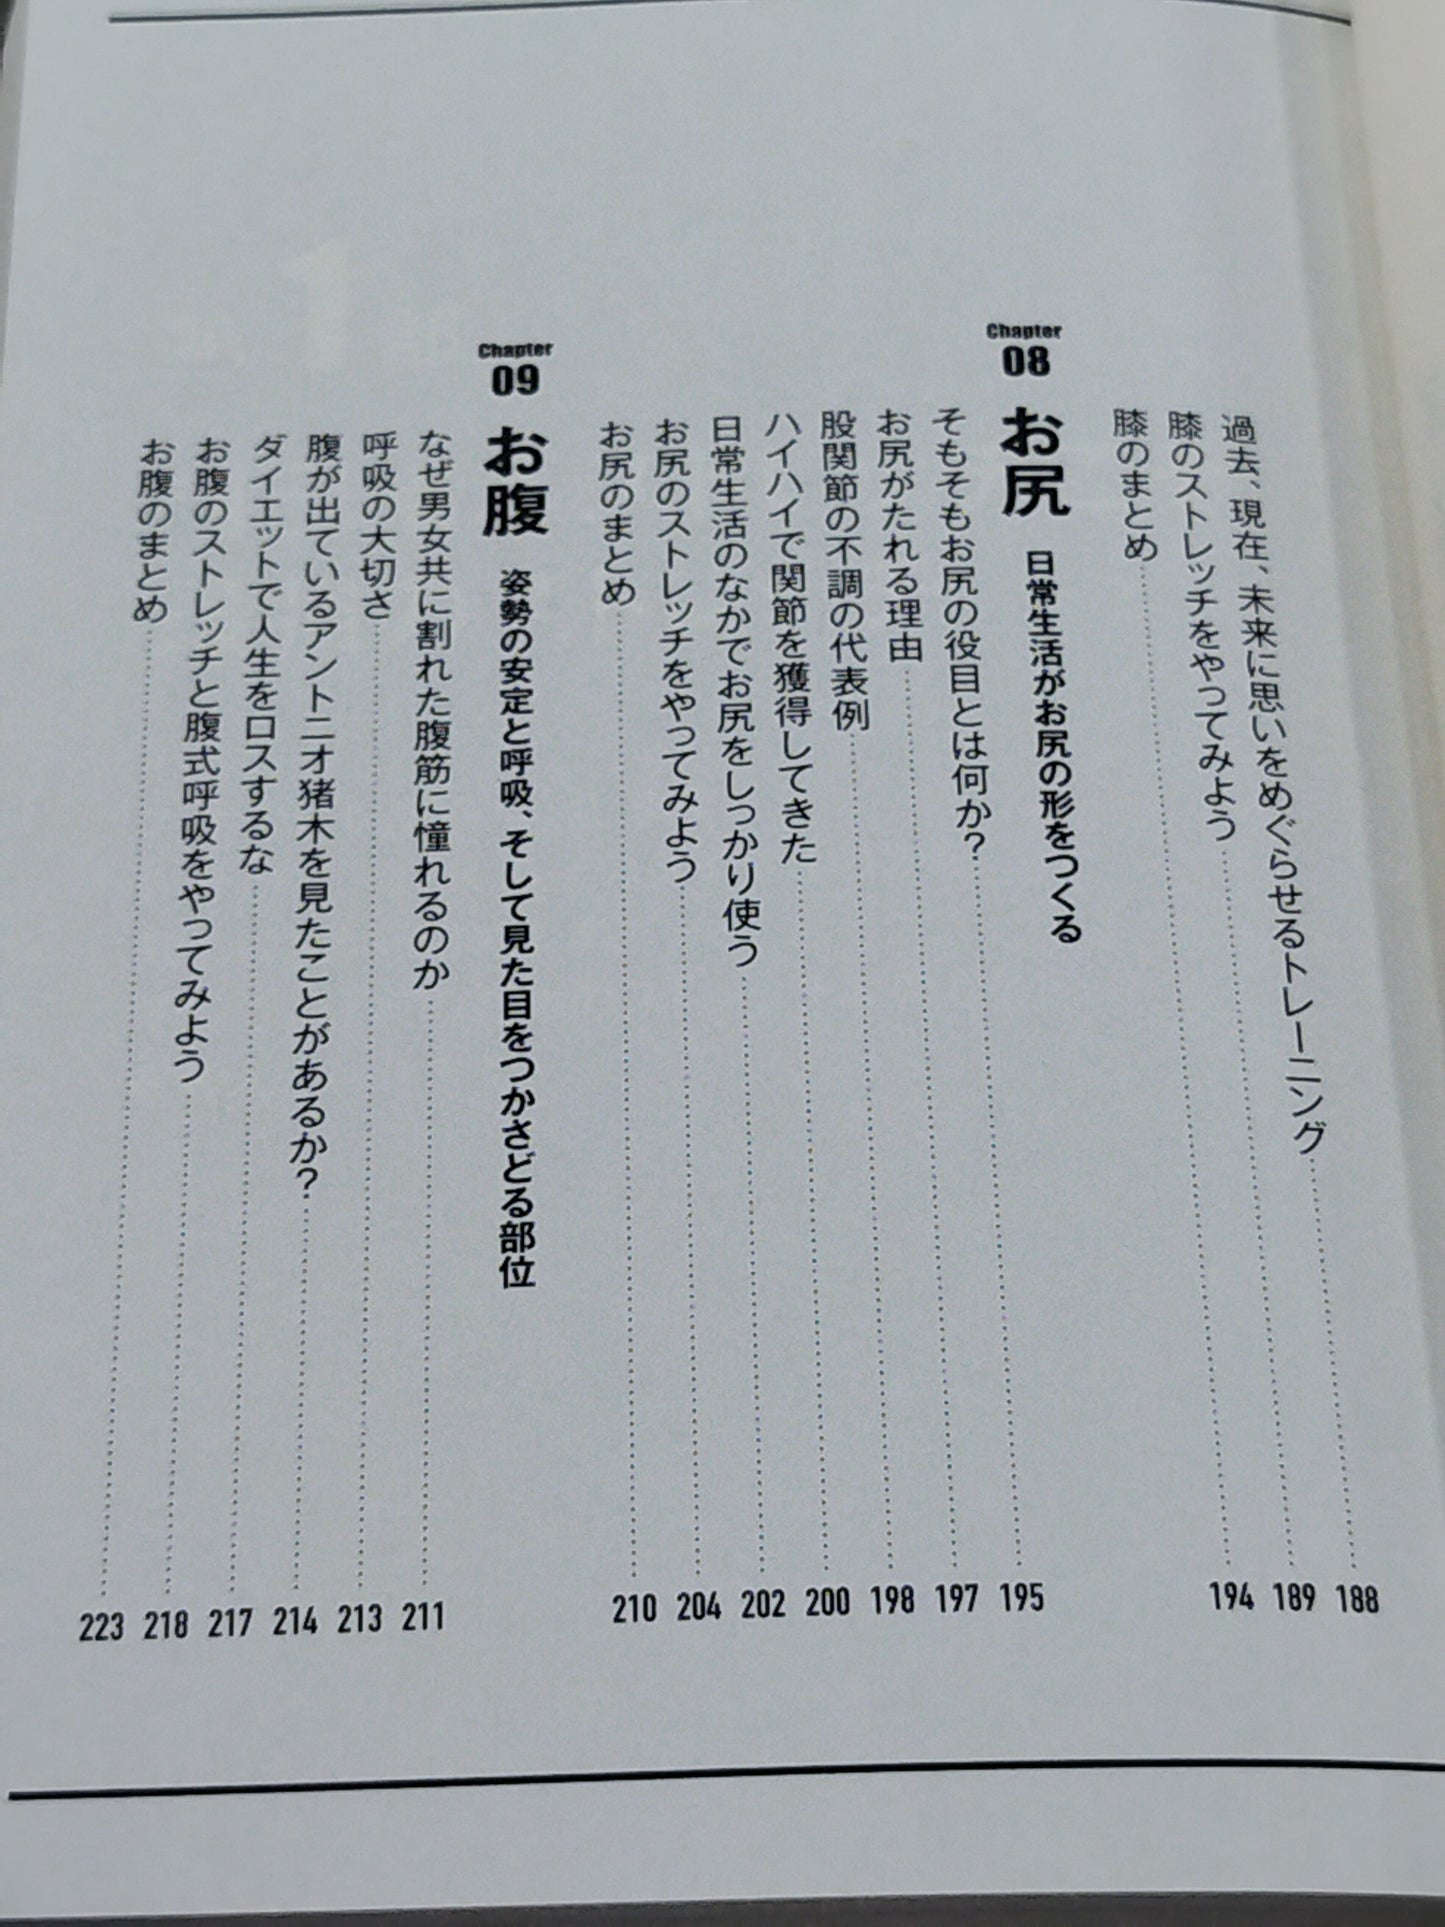 過去、現在、未来に思いをめぐらせるトレーニング 188
膝のストレッチをやってみよう 189
膝のまとめ 194
Chapter
08
お尻 日常生活がお尻の形をつくる
そもそもお尻の役目とは何か？ 195
お尻がたれる理由 197
股関節の不調の代表例 198
ハイハイで関節を獲得してきた 200
日常生活のなかでお尻をしっかり使う 202
お尻のストレッチをやってみよう 204
お尻のまとめ 210
Chapter
09
お腹 姿勢の安定と呼吸、そして見た目をつかさどる部位
なぜ男女共に割れた腹筋に憧れるのか 211
呼吸の大切さ 213
腹が出ているアントニオ猪木を見たことがあるか？ 214
ダイエットで人生をロスするな 217
お腹のストレッチと腹式呼吸をやってみよう 218
お腹のまとめ 223